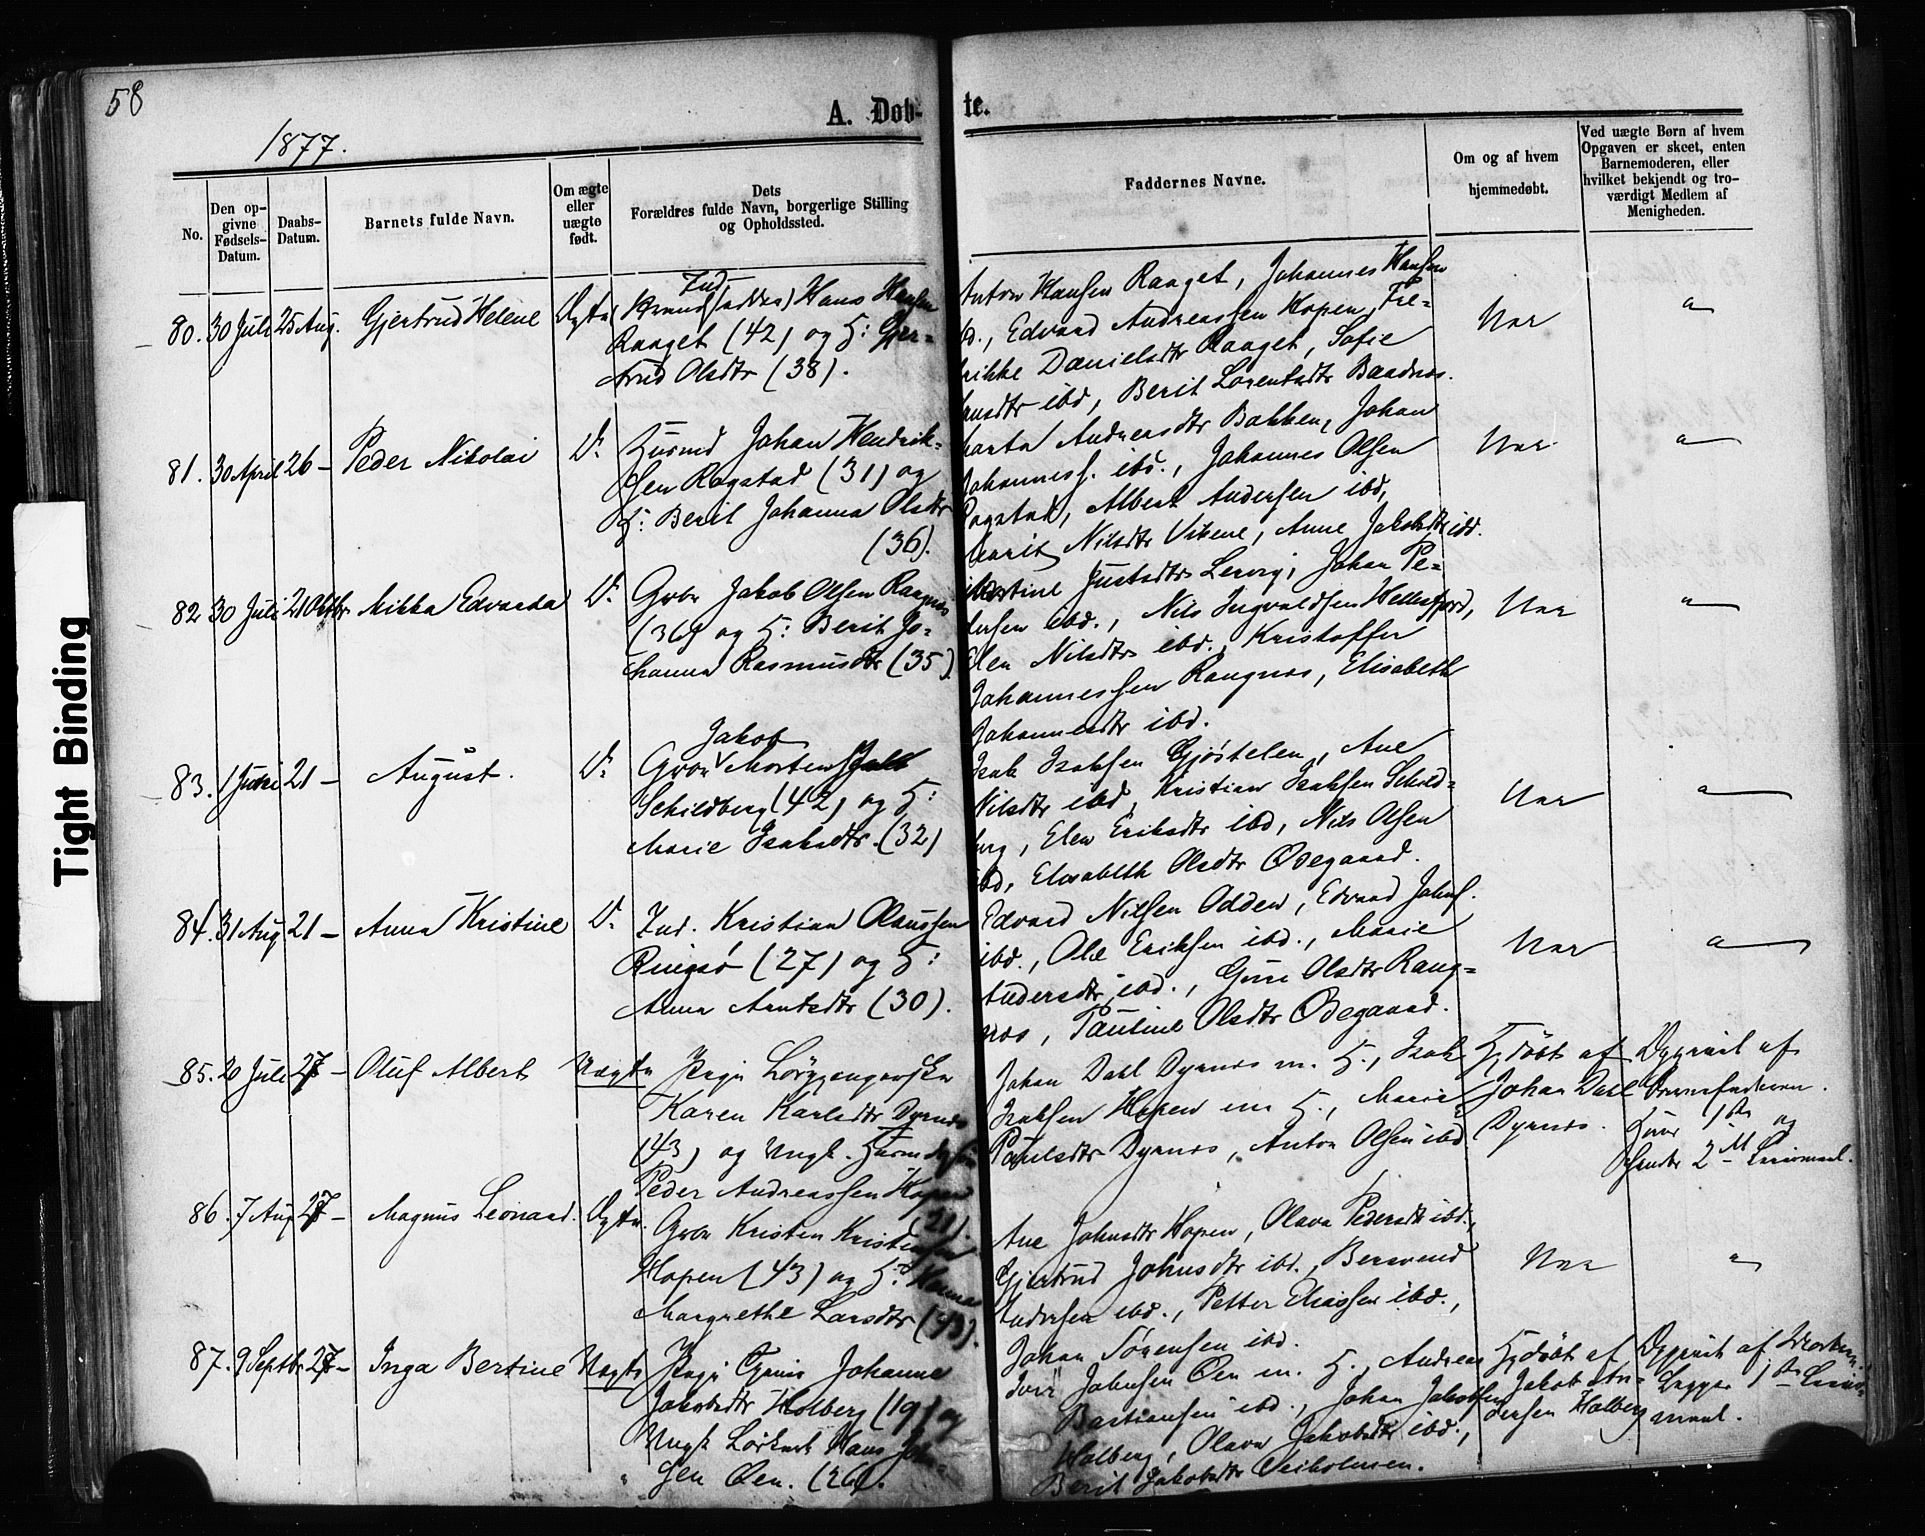 58
A. Døb-
te.
1877.
No.
Den op-
givne
Fødsels-
Datum.
Daabs-
Datum.
Barnets fulde Navn.
Om ægte
eller
uægte
født.
Dets
Forældres fulde Navn, borgerlige Stilling
og Opholdssted.
Faddernes Navne.
Om og af hvem
hjemmedøbt.
Ved uægte Børn af hvem
Opgaven er skeet, enten
Barnemoderen, eller
hvilket bekjendt og tro-
værdigt Medlem af
Menigheden.
80. 30 Juli 25 Aug. Gjertrud Helene
Ind
Hans Hansen
Raaget (42) og H: Gjer-
trud Olsdtr (38).
Anton Hansen Raaget, Johannes Hansen
ibd., Edvard Andreassen Hopen, Fre-
rikke Danielsdtr Raaget, Sofie
ibd, Berit Lorentsdtr
81. 30 April 26 – Peder Nikolai Do
Husmd Johan Hendrik-
sen Rogstad (31) og
H: Berit Johanna Olsdtr
(36).
Andreasdtr Bakken, Johan
Johannes. ibd., Johannes Olsen
Rogstad, Albert Andersen ibd,
Marit Nilsdtr Vikene, Anne Jakobsdtr ibd.
82 30 Juli 21 Oktbr Mikka Edvarda Do
Gbr Jakob Olsen Rangnes
(36) og H: Berit Jo-
hanna Rasmusdtr (35).
Justsdtr Lervig, Johan Pe-
dersen ibd., Nils Ingvaldsen Hellesfjord,
Elen Nilsdtr ibd., Kristoffer
Johannessen Rangnes, Elisabeth
Johannesdtr ibd.
83. 1 Juni 21 – August. Do
Jakob
Gbr Morten
Schildberg (42) og H:
Marie Isaksdtr. (32)
Isak Isaksen Gjøstelen, Ane
Nilsdtr ibd, Kristian Isaksen Schild-
berg, Elen Eriksdtr ibd, Nils Olsen
ibd, Elisabeth Olsdtr Ødegaard.
84. 31 Aug 21 – Anna Kristine Do
Ind. Kristian Olaussen
Ringsø (27) og H:
Anna Arntsdtr (30).
Edvard Nilsen Odden, Edvard Johns.
ibd., Ole Eriksen ibd., Marie
Andersdtr ibd., Guri Olsdtr Rang-
nes, Pauline Olsdtr Ødegaard.
85. 20 Juli 27 – Oluf Albert Uægte
Pige
Karen Karlsdtr Dyrnes
(43) og Ungk.
Peder Andreassen Hopen
(21).
Johan Dahl Dyrnes m. H., Isak
Isaksen Hopen m H., Marie
Paulsdtr Dyrnes, Anton Olsen ibd
Hjdøbt af
Johan Dahl
Dyrnes.
Opgivet af
Barnefaderen.
Hans 1ste og
hendes 2det Leiermaal.
86. 7 Aug 27 – Magnus Leonard. Ægte.
Gbr Kristen Kristensen
Hopen (43) og H: Hanna
Margrethe Larsdtr (43).
Ane Johnsdtr Hopen, Olava Pedersdtr ibd.,
Gjertrud Johnsdtr ibd.,
Andersen ibd., Petter Eliassen ibd.,
Johan Sørensen ibd.
87. 9 Septbr 27 – Inga Bertine Uægte
Pige Johanna
Jakobsdtr Holberg (19) og
Ungk Hans Joh-
sen Øen. (26).
Johnsen Øen m. H., Andreas
Bastiansen ibd., Johan Jakobsen
Holberg, Olava Jakobsdtr ibd.,
Berit Jakobsdtr
Hjdøbt af
Jakob An-
dersen Holberg
Opgivet af Moderen.
Begges 1ste Leier-
maal.